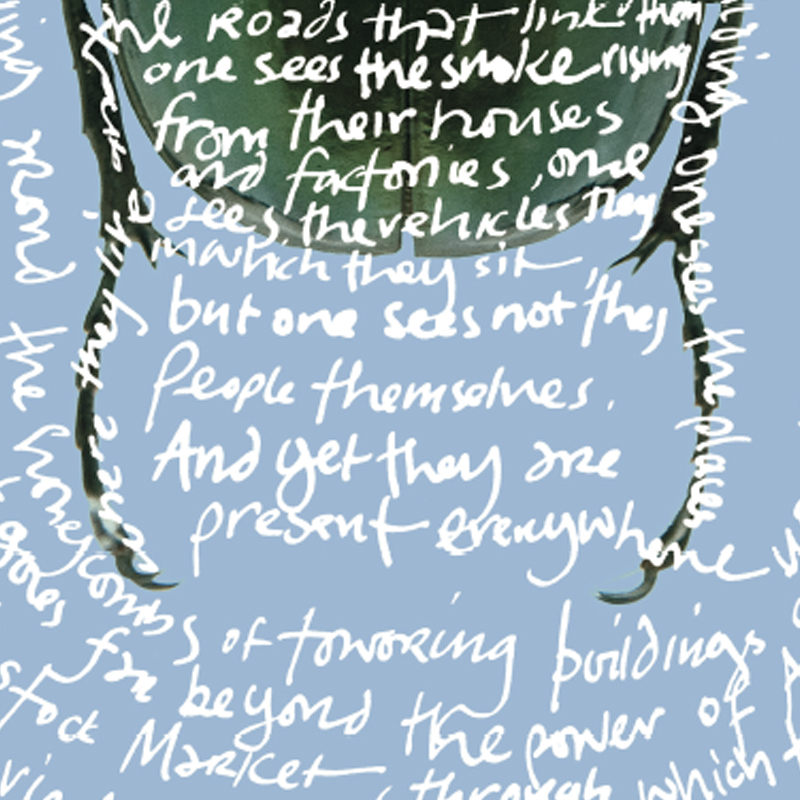 the Roads that link them
one sees the smoke rising
from their houses
and factories, one
sees the vehicles they
in which they sit,
but one sees not they
People themselves.
And yet they are
present everywhere
honeycombs of towering buildings
far beyond the power of
stock Market
through which
round the
one sees the places